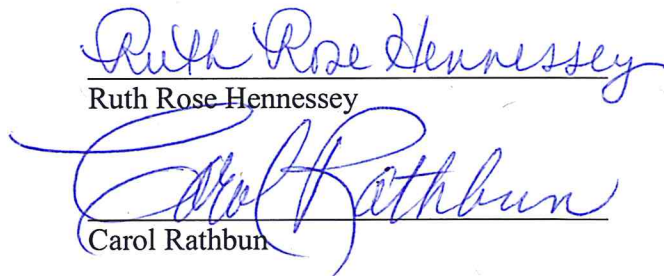 Ruth Rose Hennessey
Ruth Rose Hennessey
Carol Rathbun
Carol Rathbun